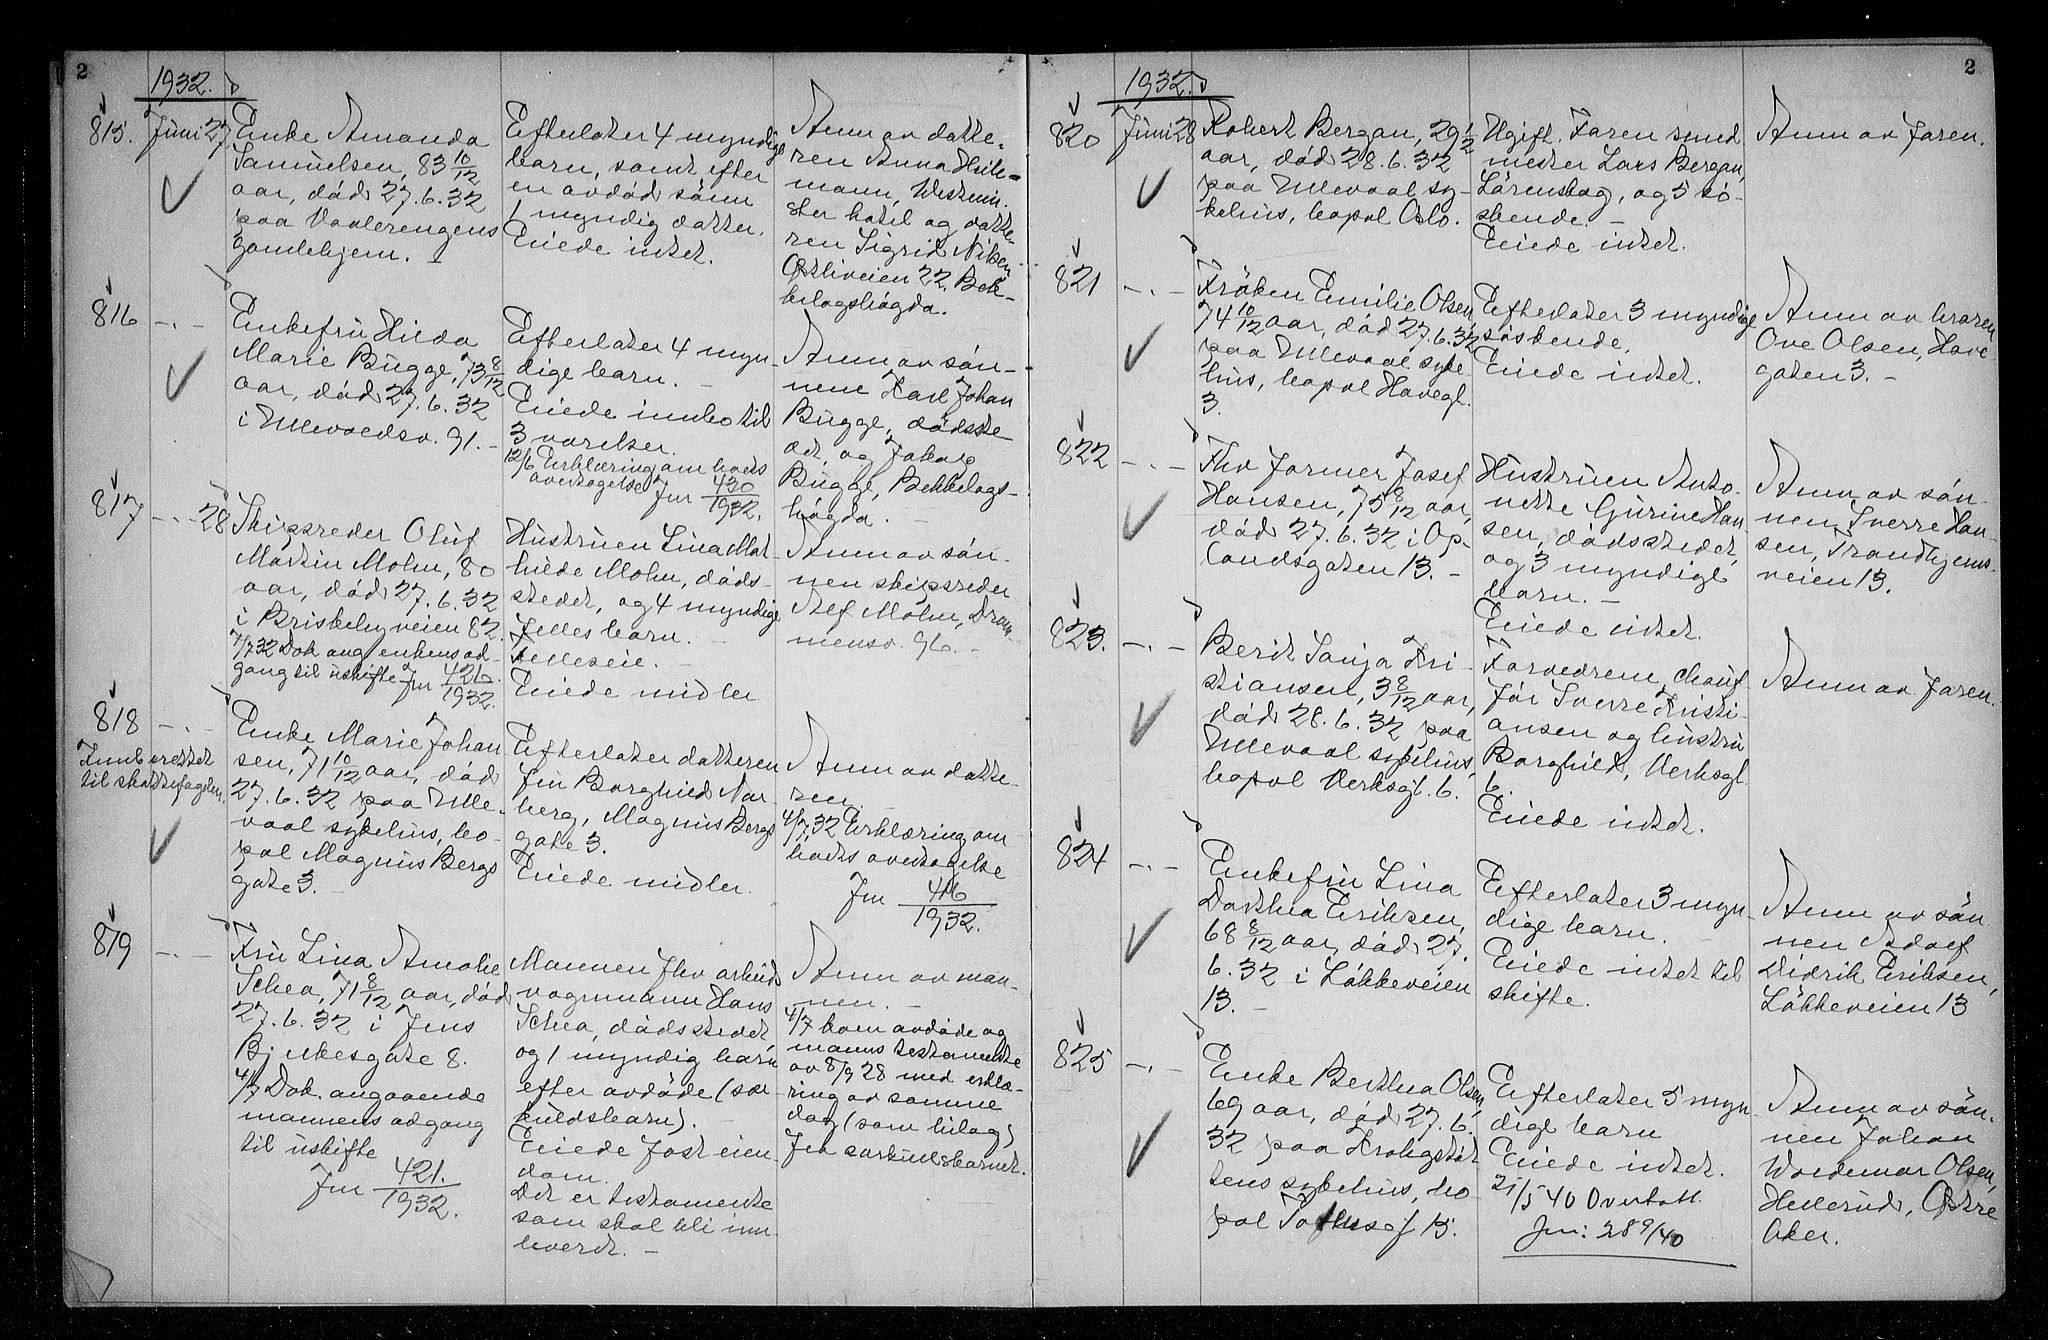 2
1932.
815. Juni 27
Enke Amanda
Samuelsen, 83 10/12
aar, död 27.6.32
paa Vaalerengens
gamlehjem.
Efterlater 4 myndige
barn, samt efter
en avdöd sönn
1 myndig datter.
Eiede intet.
Anm av datte-
ren Anna Heile-
mann, Westmin-
ster hotel og datte-
ren Sigrid Nilsen
Östliveien 22, Bek-
kelagshögda.
816 -.-
Enkefru Hilda
Marie Bugge, 73 8/12
aar, död 27.6.32
i Ullevoldsv. 91.-
Efterlater 4 myn-
dige barn.-
Eiede innbo til
3 værelser.
12/6 Erklæring om boets
overtagelse Jnr 430/1932.
Anm av søn-
nene Karl Johan
Bugge, dödsste-
det, og Jakob
Bugge, Bekkelags-
högda.-
817 -.- 28
Skipsreder Oluf
Martin Mohn, 80
aar, död 27.6.32
i Briskebyveien 82.
7/7 32 Dok. ang enkens ad-
gang til uskifte Jnr 420/1932.
Hustruen Lina Mat-
hilde Mohn, döds-
stedet, og 4 myndige
felles barn.-
Felleseie.-
Eiede midler
Anm av sön-
nen skipsreder
Alf Mohn, Dram-
mensv. 96.-
818 -.-
Innberettet
til skattefogden.
Enke Marie Johan
sen, 71 10/12 aar, död
27.6.32 paa Ulle-
vaal sykehus, bo-
pæl Magnus Bergs
gate 3.-
Efterlater datteren
fru Borghild Nor-
berg, Magnus Bergs
gate 3.
Eiede midler.
Anm av datte-
ren.
4/7 32 Erklæring om
boets overtagelse
Jnr 416/1932.
819 -.-
Fru Lina Amalie
Schea, 71 8/12 aar, död
27.6.32 i Jens
Bjelkesgate 8.
4/7 Dok. angaaende
mannens adgang
til uskifte
Jnr 421./1932.
Mannen fhv arbeids
vognmann Hans
Schea, dödsstedet,
og 1 myndig barn
efter avdöde (sær
kuldsbarn).-
Eiede fast eien-
dom.
Det er testamente
som skal bli inn-
levert.-
Anm av man-
nen.-
4/7 kom avdöde og
manns testamente
av 8/9 28 med erklæ-
ring av samme
dag (som bilag)
fra særkullsbarnet.
2
1932.
820 Juni 28
Robert Bergan, 29 1/2
aar, död 28.6.32
paa Ullevaal sy-
kehus, bopæl Oslo.
Ugift. Faren smed
mester Lars Bergan,
Lörenskog, og 5 sö-
skende.-
Eiede intet.
Anm av faren.
821 -.-
Fröken Emilie Olsen
74 10/12 aar, död 27.6.32
paa Ullevaal syke
hus, bopæl Havegt.
3.
Efterlater 3 myndige
söskende.
Eiede intet.
Anm av broren
Ove Olsen, Have-
gaten 3.-
822 -.-
Fhv former Josef
Hansen, 75 8/12 aar,
död 27.6.32 i Op-
landsgaten 13.-
Hustruen Anto-
nette Gurine Han-
sen, dödsstedet,
og 3 myndige
barn.-
Eiede intet.
Anm av sön-
nen, Sverre Han-
sen, Trondhjems-
veien 13.
823. -.-
Berit Sonja Kri-
stiansen, 3 8/12 aar,
död 28.6.32 paa
Ullevaal sykehus,
bopæl Verksgt. 6.
Forældrene, chauf-
för Sverre Kristi-
ansen og hustru
Borghild, Verksgt.
6.
Eiede intet.
Anm av faren.
824 -.-
Enkefru Lina
Dorthea Eriksen,
68 8/12 aar, död 27.
6.32 i Lökkeveien
13.-
Efterlater 3 myn-
dige barn.-
Eiede intet til
skifte.
Anm av sön
nen Adolf
Didrik Eriksen,
Lökkeveien 13
825 -.-
Enke Berthea Olsen,
69 aar, död 27.6.
32 paa Krohgstöt
tens sykehus, bo-
pæl Toftesgt 15.
Efterlater 5 myn
dige barn
Eiede intet.
21/5 40 Overtatt
Jnr: 289/40
Anm av sön-
nen Johan
Woldemar Olsen,
Hellerud, Östre
Aker.